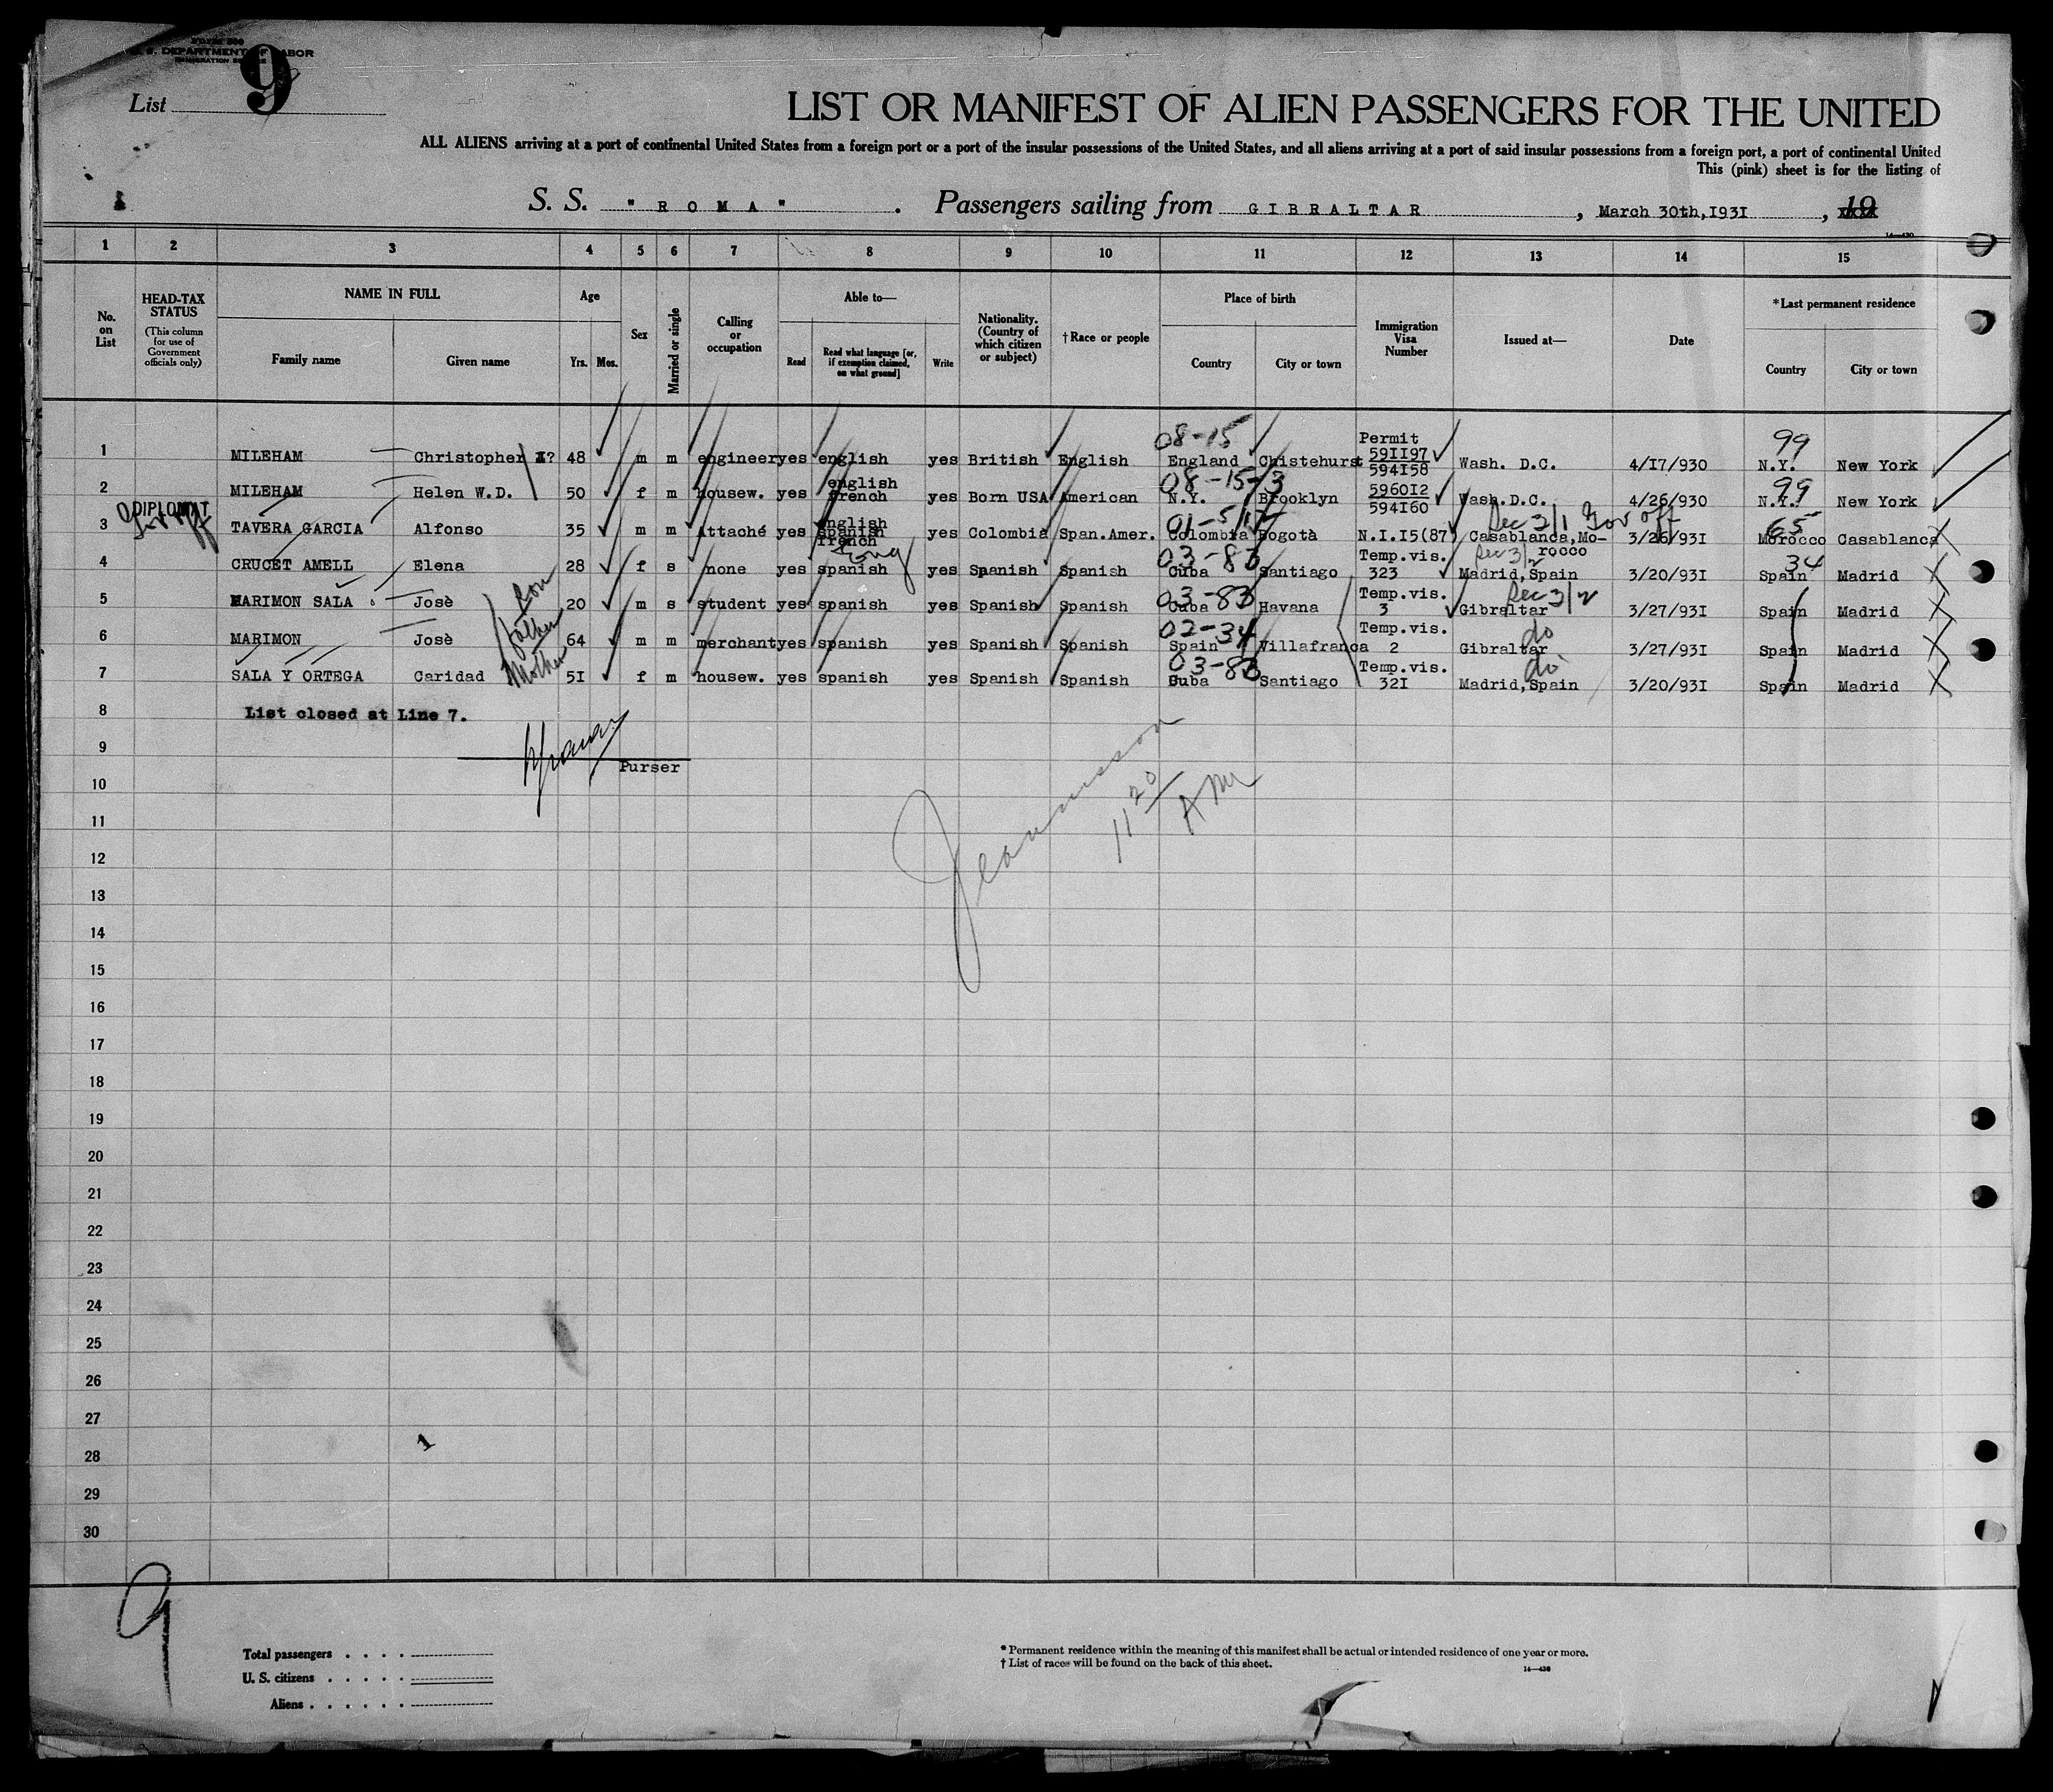 Form 500
U. S. DEPARTMENT OF LABOR
IMMIGRATION SERVICE
List 9
LIST OR MANIFEST OF ALIEN PASSENGERS FOR THE UNITED
ALL ALIENS arriving at a port of continental United States from a foreign port or a port of the insular possessions of the United States, and all aliens arriving at a port of said insular possessions from a foreign port, a port of continental United
This (pink) sheet is for the listing of
S. S. "ROMA". Passengers sailing from GIBRALTAR, March 30th,I93I, 19
1 2 3 4 5 6 7 8 9 10 11 12 13 14 15
No. on List
HEAD-TAX STATUS (This column for use of Government officials only)
NAME IN FULL Family name Given name
Age Yrs. Mos.
Sex
Married or single
Calling or occupation
Able to— Read Read what language [or, if exemption claimed, on what ground] Write
Nationality. (Country of which citizen or subject)
†Race or people
Place of birth Country City or town
Immigration Visa Number
Issued at—
Date
*Last permanent residence Country City or town
1 MILEHAM Christopher 48 m m engineer yes english yes British English 08-15 England Chistehurst Permit 59II97 594I58 Wash. D.C. 4/I7/930 99 N.Y. New York
2 MILEHAM Helen W.D. 50 f m housew. yes english french yes Born USA American 08-15-3 N.Y. Brooklyn 5960I2 594I60 Wash.D.C. 4/26/930 99 N.Y. New York
3 DIPLOMAT Gov off TAVERA GARCIA Alfonso 35 m m Attaché yes english spanish french yes Colombia Span.Amer. Colombia Bogotà N.I.I5(87) Sec 3/1 Gov off Casablanca,Mo-rocco 3/26/93I 65 Morocco Casablanca
4 CRUCET AMELL Elena 28 f s none yes spanish yes Spanish Spanish 03-83 Cuba Santiago Temp.vis. 323 Sec 3/2 Madrid,Spain 3/20/93I 34 Spain Madrid
5 MARIMON SALA Josè son 20 m s student yes spanish yes Spanish Spanish 03-83 Cuba Havana Temp.vis. 3 Sec 3/2 Gibraltar 3/27/93I Spain Madrid
6 MARIMON Josè father 64 m m merchant yes spanish yes Spanish Spanish 02-34 Spain Villafranca Temp.vis. 2 do Gibraltar 3/27/93I Spain Madrid
7 SALA Y ORTEGA Caridad mother 5I f m housew. yes spanish yes Spanish Spanish 03-83 Cuba Santiago Temp.vis. 32I do Madrid,Spain 3/20/93I Spain Madrid
8 List closed at Line 7.
9
Purser
10
11 11 20 AM
12
13
14
15
16
17
18
19
20
21
22
23
24
25
26
27
28
29
30
9
Total passengers
U. S. citizens
Aliens
* Permanent residence within the meaning of this manifest shall be actual or intended residence of one year or more.
† List of races will be found on the back of this sheet.
14—430